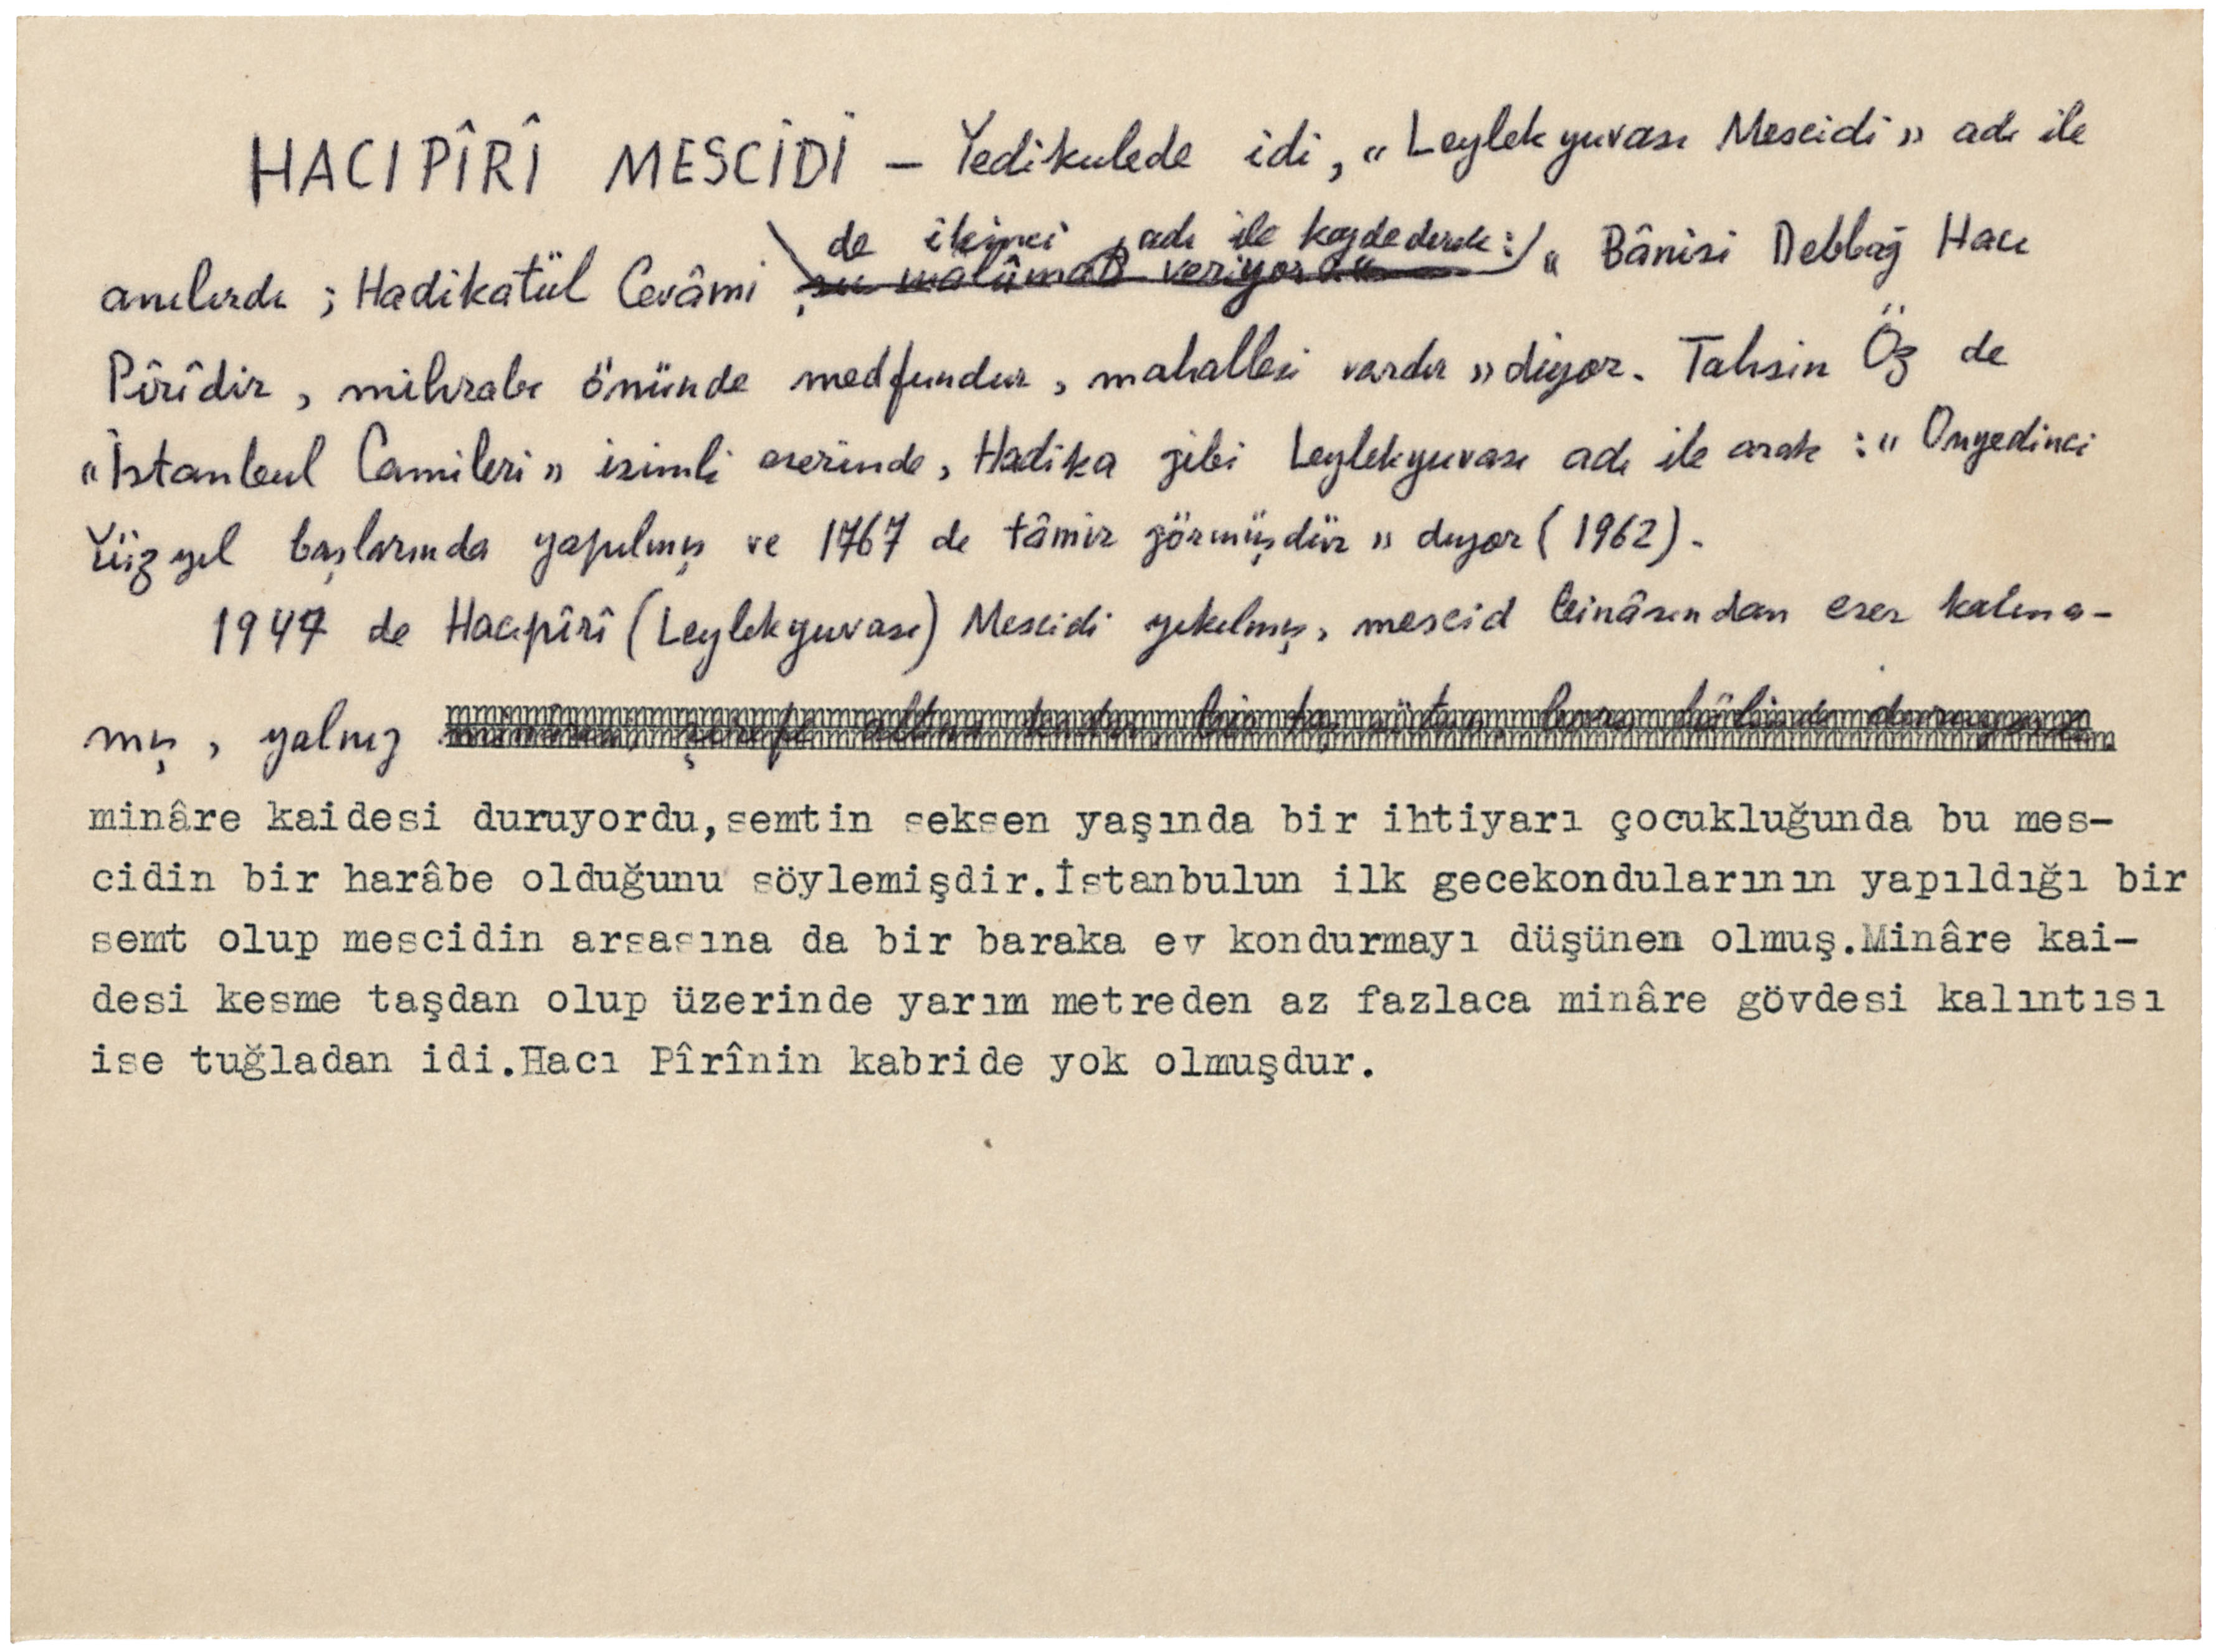 HACIPÎRÎ MESCİDİ — Yedikulede idi, « Leylekyuvası Mescidi » adı ile
de ikinci adı ile kaydederek :
anılırdı ; Hadikatül Cevâmi şu malûmatı veriyor « Bânisi Debbağ Hacı
Pîrîdir, mihrabı önünde medfundur, mahallesi vardır » diyor. Tahsin Öz de
«İstanbul Camileri» isimli eserinde, Hadika gibi Leylekyuvası adı ile arak : « Onyedinci
Yüzyıl başlarında yapılmış ve 1767 de tâmir görmüşdür » diyor ( 1962 ).
1947 de Hacıpîrî ( Leylekyuvası ) Mescidi yıkılmış, mescid binâsından eser kalma-
mış, yalnız
minâre kaidesi duruyordu,semtin seksen yaşında bir ihtiyarı çocukluğunda bu mes-
cidin bir harâbe olduğunu söylemişdir.İstanbulun ilk gecekondularının yapıldığı bir
semt olup mescidin arsasına da bir baraka ev kondurmayı düşünen olmuş.Minâre kai-
desi kesme taşdan olup üzerinde yarım metreden az fazlaca minâre gövdesi kalıntısı
ise tuğladan idi.Hacı Pîrînin kabride yok olmuşdur.